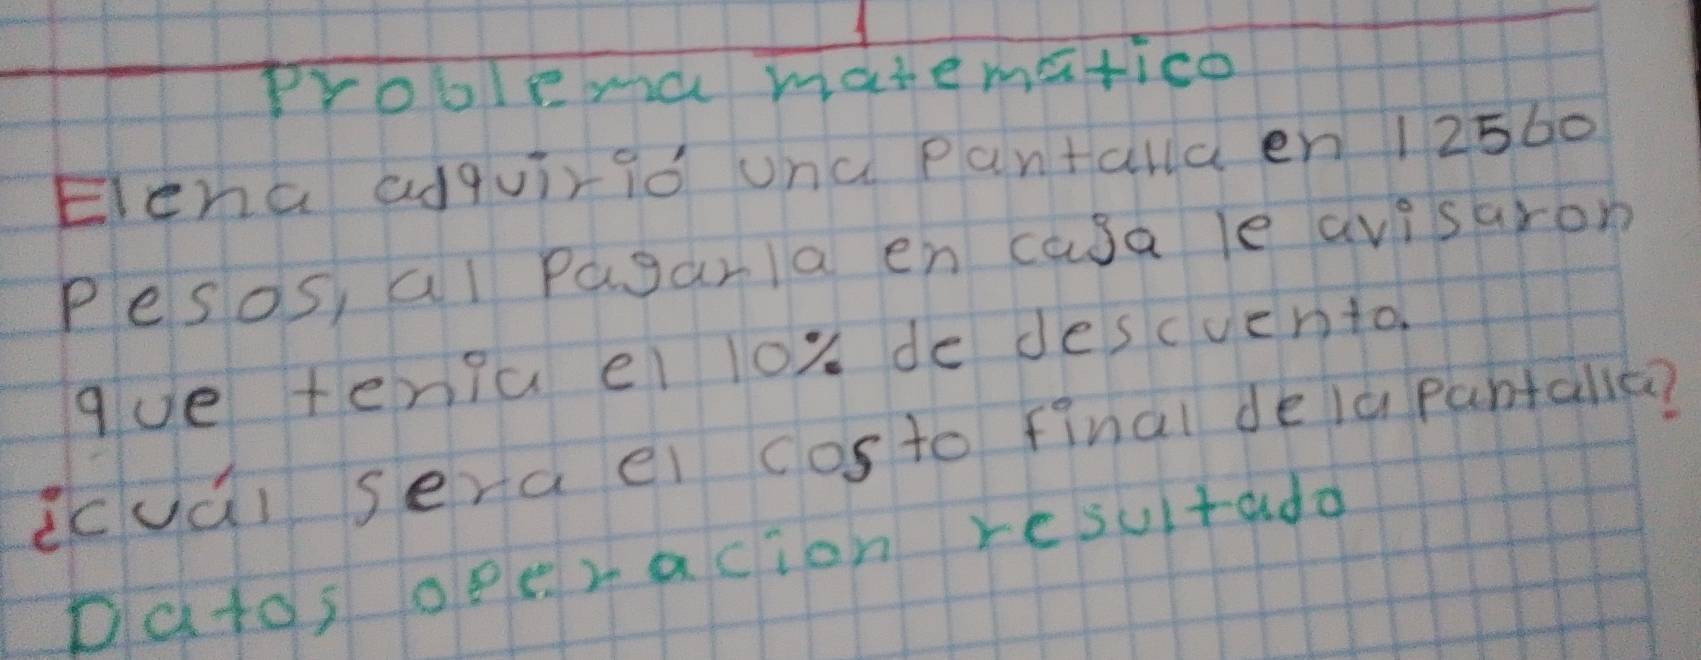 Problema matemático
Elena adquirió una Pantalla en 12560
Pesos, al Pagarla en caja le avisaron
que tenia el 10% de descuento.
¿cuál sera el costo final de la pantalla?
Datos operacion resultado